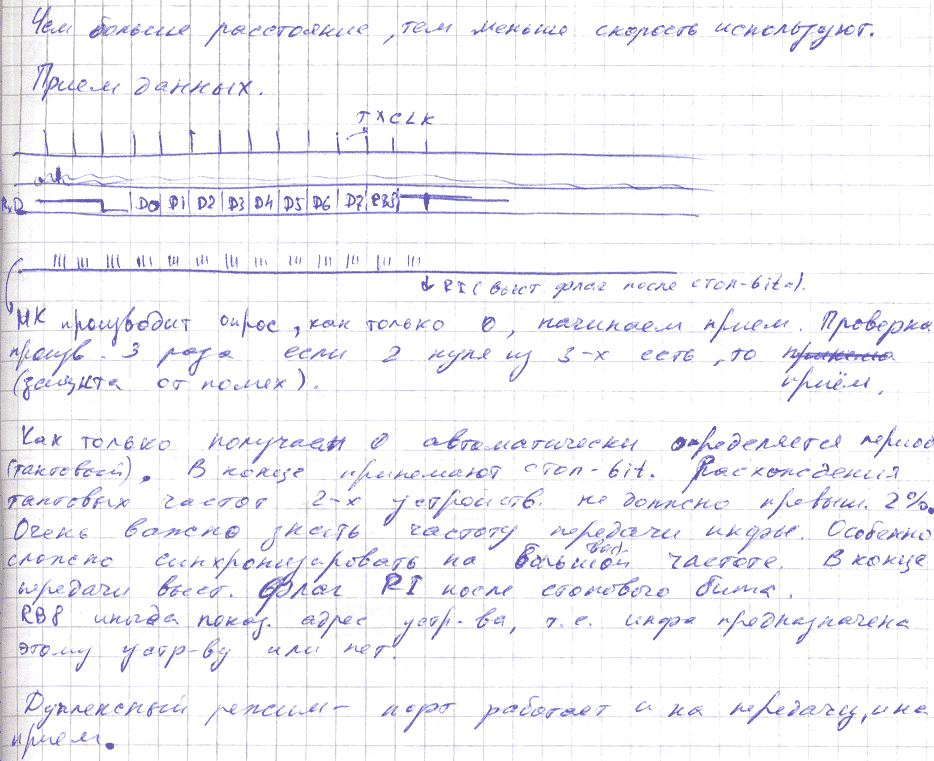 Чем больше расстояние, тем меньше скорость используют.
Прием данных.
TXCLK
RxD D0 D1 D2 D3 D4 D5 D6 D7 RB8
RI (выст флаг после стоп-bita).
МК производит опрос, как только 0, начинаем прием. Проверка
произв. 3 раза если 2 нуля из 3-х есть, то
(защита от помех). приём.
Как только получаем 0 автоматически определяется период
(тактовый). В конце принемают стоп-bit. Расхождения
тактовых частот 2-х устройств. не должно превыш. 2%.
Очень важно знать частоту передачи инфы. Особенно
сложно синхронизировать на большой выс. частоте. В конце
передачи выст. Флаг RI после стопового бита.
RB8 иногда показ. адрес устр-ва, т.е. инфа предназначена
этому устр-ву или нет.
Дуплексный режим - порт работает и на передачу, и на
прием.